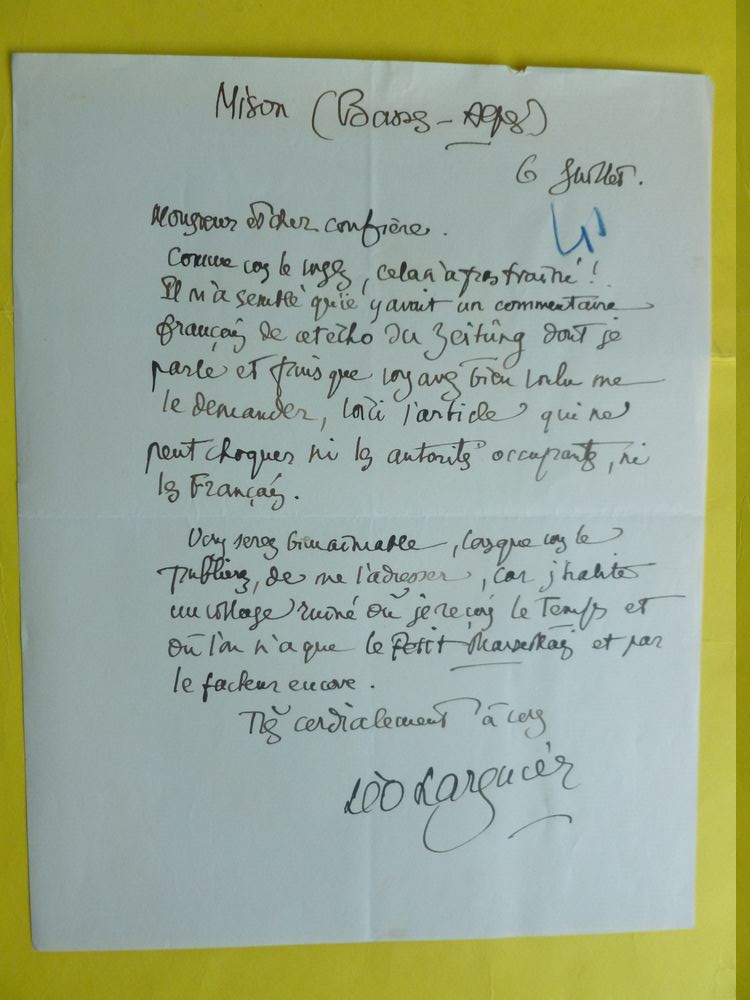 Mison (Basses-Alpes)
6 Juillet.
41
Monsieur et cher confrère.
Comme vous le voyez, cela n'a pas traîné !
Il m'a semblé qu'il y avait un commentaire
français de cet écho du Zeitung dont je
parle et puisque vous avez bien voulu me
le demander, voici l'article qui ne
peut choquer ni les autorités occupantes, ni
les Français.
Vous serez bien aimable, lorsque vous le
publierez, de me l'adresser, car j'habite
un village ruiné où je reçois le Temps et
où l'on n'a que le Petit Marseillais et par
le facteur encore.
Très cordialement à vous
Léo Larguier